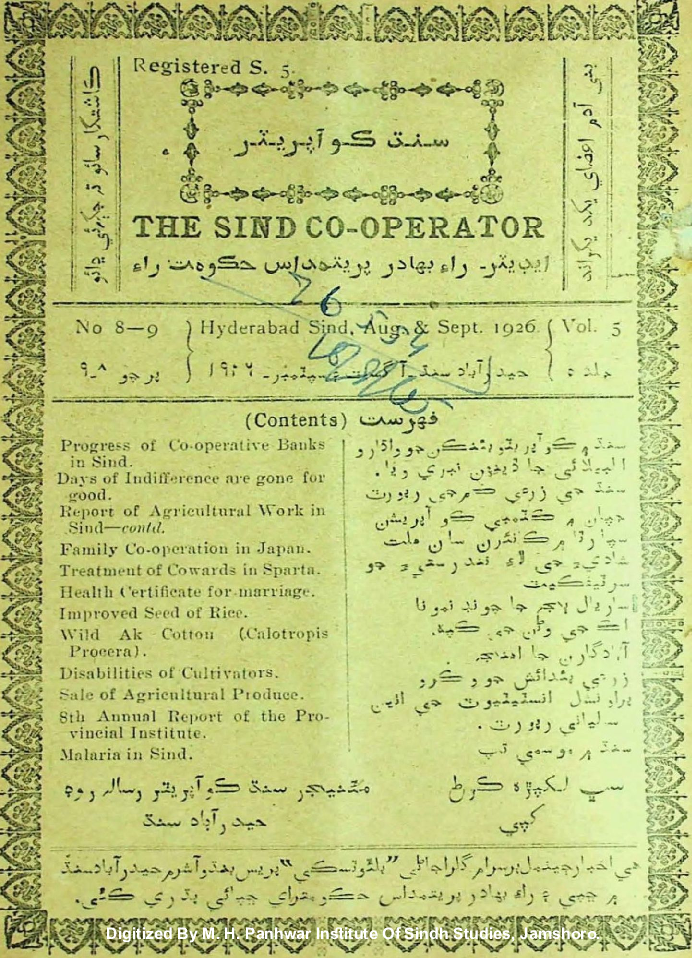 Registered S. 5.
ڪاشتڪار سائو تر جڳ سائو
بني آدم اعضاي يڪ ديگراند
سنڌ ڪوآپريٽر
THE SIND CO-OPERATOR
ايڊيٽر۔ راءِ بهادر پريتمداس حڪومت راءِ
No 8—9 Hyderabad Sind, Aug. & Sept. 1926. Vol. 5
پرچو ۸ـ۹ حيدرآباد سنڌ۔ آگسٽ سيپٽمبر۔ ۱۹۲۶ جلد ۵
(Contents) فهرست
Progress of Co-operative Banks
in Sind.
Days of Indifference are gone for
good.
Report of Agricultural Work in
Sind—contd.
Family Co-operation in Japan.
Treatment of Cowards in Sparta.
Health Certificate for marriage.
Improved Seed of Rice.
Wild Ak Cotton (Calotropis
Procera).
Disabilities of Cultivators.
Sale of Agricultural Produce.
8th Annual Report of the Pro-
vincial Institute.
Malaria in Sind.
سنڌ ۾ ڪوآپريٽو بئنڪن جو واڌارو
جا ڏينهن نبري ويا.
سنڌ جي زرعي ڪم جي رپورٽ
جپان ۾ ڪٽمبي ڪوآپريشن
سپارٽا ۾ ڪانئرن سان
شاديءَ جي لاءِ تندرستيءَ جو
سرٽيفڪيٽ
سارين جا چونڊ نمونا
اڪ جي
آبادگارن جا
زرعي پئدائش جو وڪرو
پراونشل انسٽيٽيوٽ جي اٺين
سالياني رپورٽ.
سنڌ ۾ موسمي تپ
سڀ لکپڙهہ ڪرڻ کپي
مئنيجر سنڌ ڪوآپريٽر رسالہ روڊ
حيدرآباد سنڌ
هي اخبار چيئنمل پرسرام گلراجاڻي "بلوٽسڪي" پريس هندو آشرم حيدرآباد سنڌ
۾ ڇپي ۽ راءِ بهادر پريتمداس حڪومتراءِ ڇپائي پڌري ڪئي.
Digitized By M. H. Panhwar Institute Of Sindh Studies, Jamshoro.